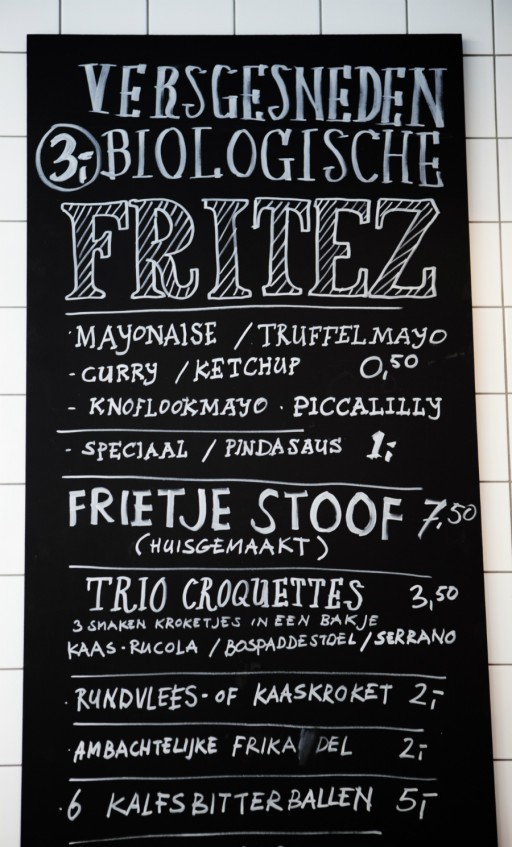 VERSGESNEDEN
3,- BIOLOGISCHE
FRITEZ
· MAYONAISE / TRUFFELMAYO
- CURRY / KETCHUP 0,50
- KNOFLOOKMAYO · PICCALILLY
- SPECIAAL / PINDASAUS 1,-
FRIETJE STOOF 7,50
(HUISGEMAAKT)
TRIO CROQUETTES 3,50
3 SMAKEN KROKETJES IN EEN BAKJE
KAAS·RUCOLA / BOSPADDESTOEL / SERRANO
· RUNDVLEES- OF KAASKROKET 2,-
· AMBACHTELIJKE FRIKA DEL 2,-
· 6 KALFSBITTERBALLEN 5,-